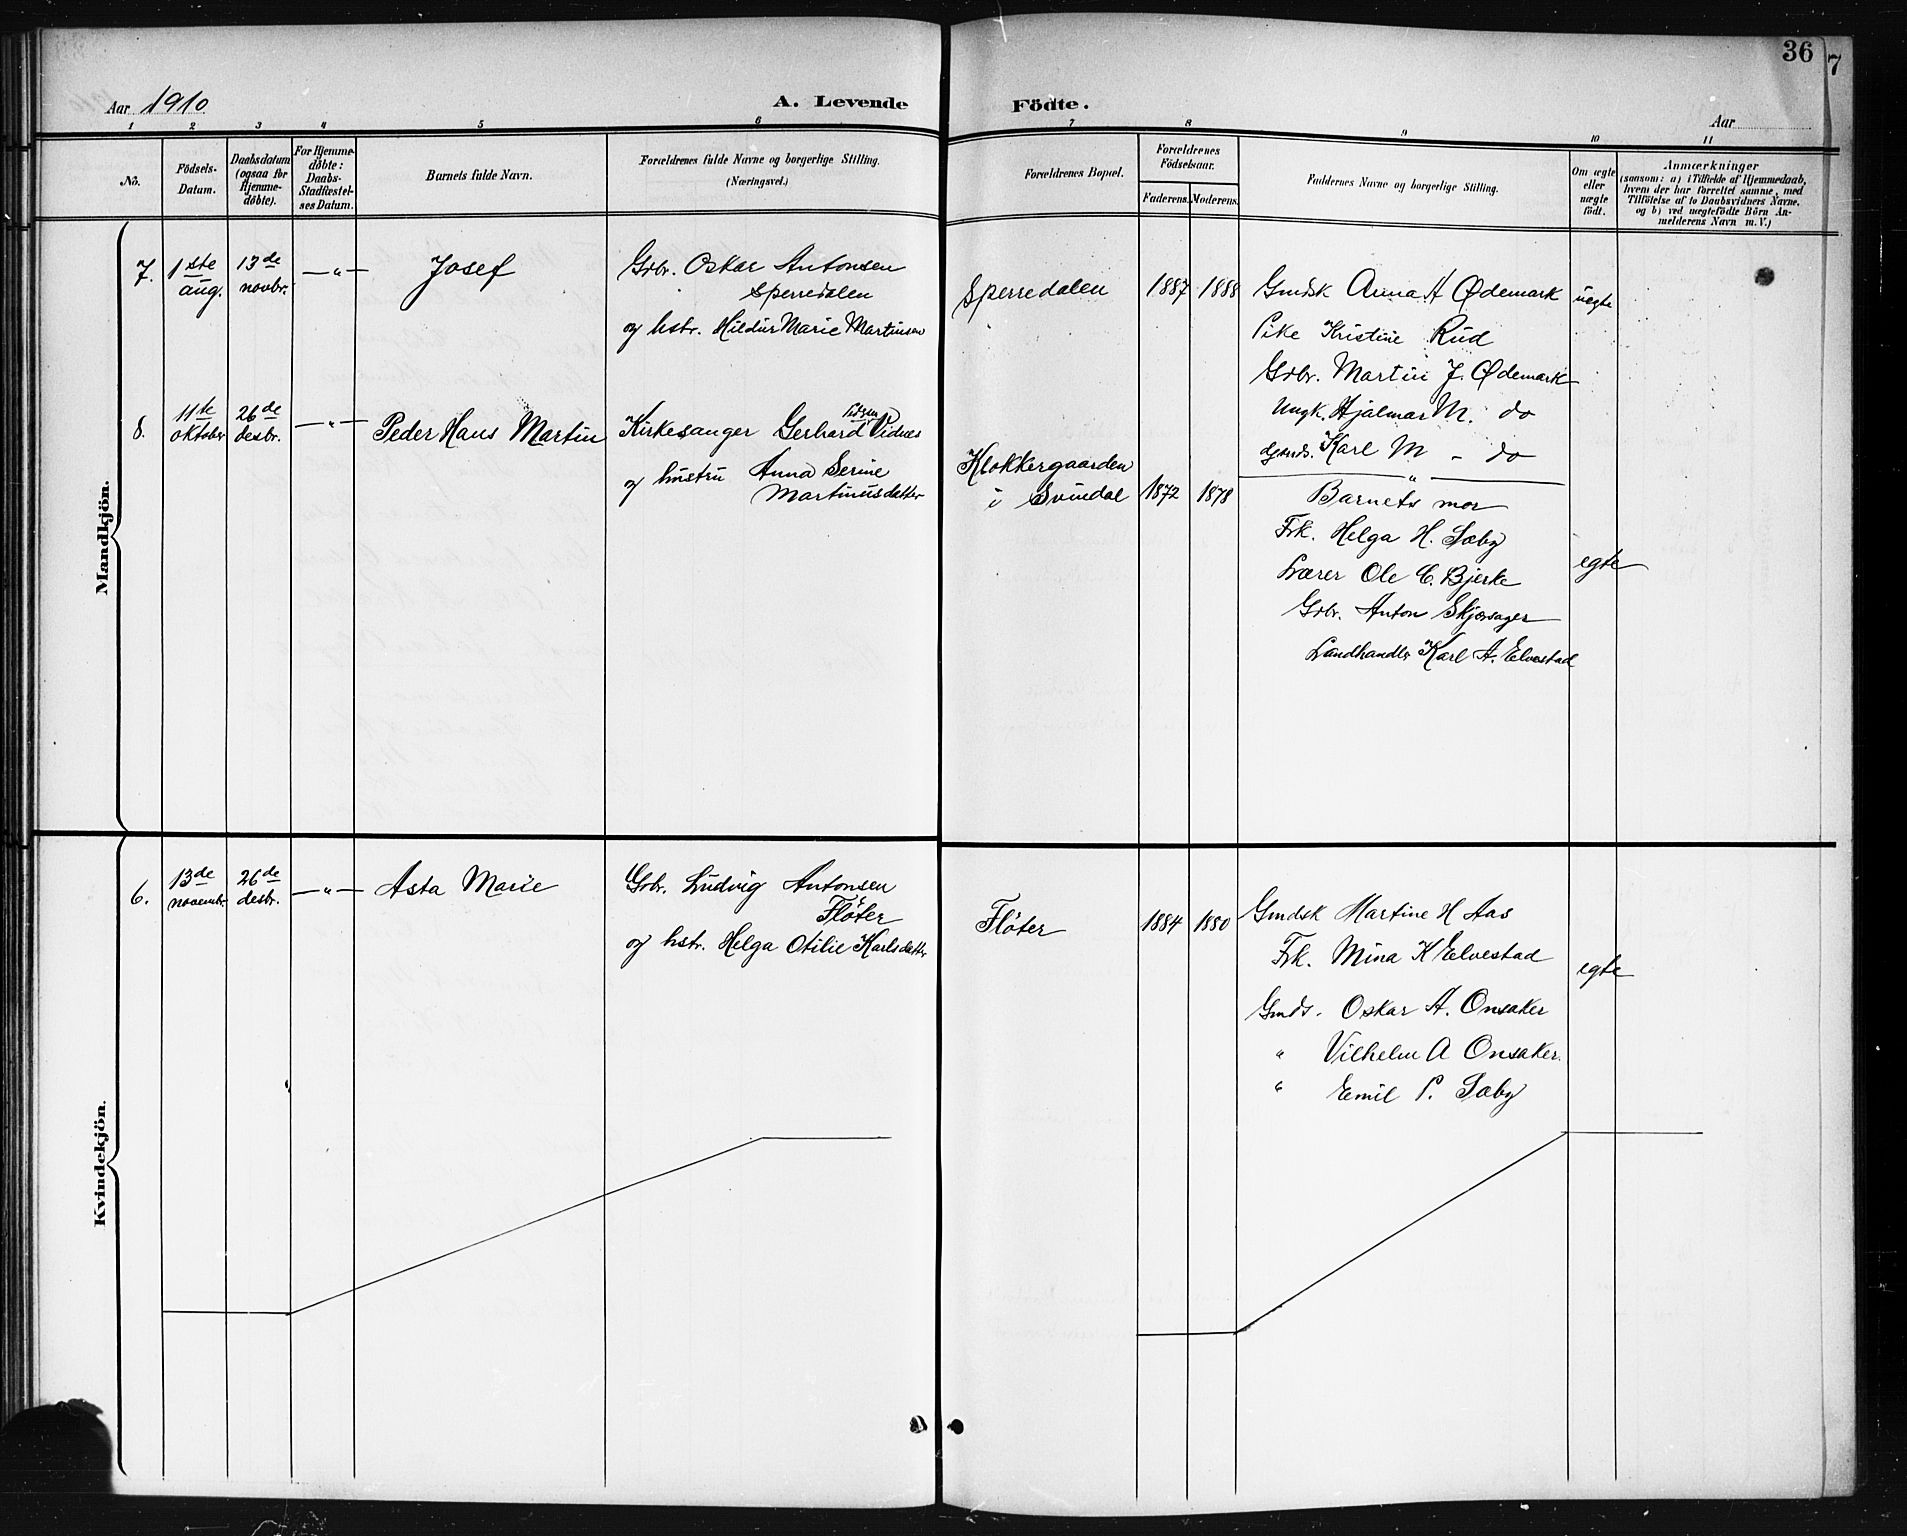 36
7
Aar 1910
A. Levende Födte.
Aar
1 2 3 4 5 6 7 8 9 10 11
No.
Födsels-
Datum.
Daabsdatum
(ogsaa for
Hjemme-
döbte).
For Hjemme-
döbte:
Daabs-
Stadfæstel-
ses Datum.
Barnets fulde Navn.
Forældrenes fulde Navne og borgerlige Stilling.
(Næringsvei.)
Forældrenes Bopæl.
Forældrenes
Födselsaar.
Faderens. Moderens.
Faddernes Navne og borgerlige Stilling.
Om ægte
eller
uægte
födt.
Anmærkninger
(saasom: a) i Tilfælde af Hjemmedaab,
hvem der har forrettet samme, med
Tilföielse af to Daabsvidners Navne,
og b) ved uægtefödte Börn An-
melderens Navn m. V.)
Mandkjön.
7.
1ste
aug.
13de
novbr.
— " —
Josef
Gbr. Oskar Antonsen
Sperredalen
og hstr. Hildur Marie Martinsen
Sperredalen
1887 1888
Gmdsk Anna A Ødemark
Pike Kristine Rud
Gbr. Martin J. Ødemark
Ungk. Hjalmar M. do
Karl M - do
uegte
8.
11te
oktober
26de
desbr.
— " —
Peder Hans Martin
Kirkesanger Gerhard Vidnes
og hustru Anna Serine
Martinusdatter
Klokkergaarden
i Svindal
1872 1878
"
Barnets mor
Frk. Helga H. Sæby
Lærer Ole C. Bjerke
Gbr. Anton Skjørsager
Landhandlr Karl A. Elvestad
egte
Kvindekjön.
6.
13de
novembr.
26de
desbr.
— " —
Asta Marie
Gbr. Ludvig Antonsen
Fløter
og hstr. Helga Otilie Karlsdatter
Fløter
1884 1880
Gmdsk Martine H Aas
Frk. Mina K Elvestad
Gmds. Oskar A. Onsaker
" Vilhelm A Onsaker.
" Emil P. Sæby
egte